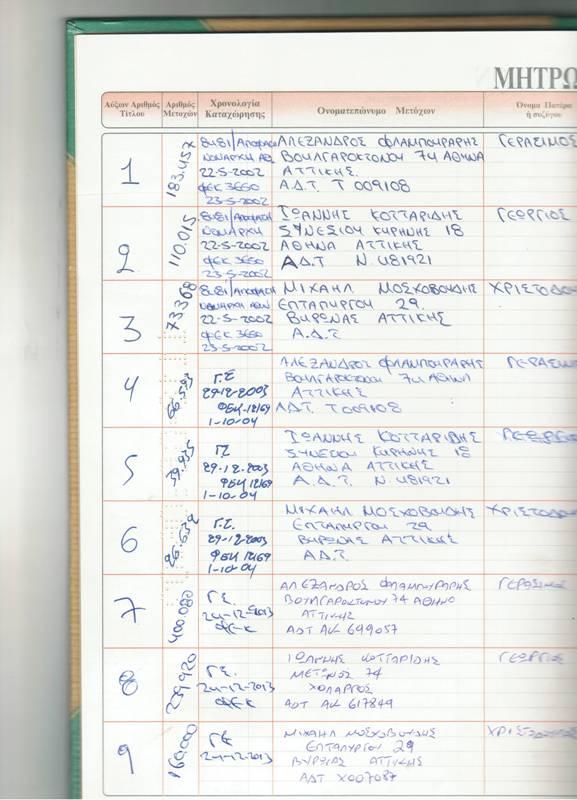 ΜΗΤΡΩ
Αύξων Αριθμός Τίτλου
Αριθμός Μετοχών
Χρονολογία Καταχώρησης
Ονοματεπώνυμο Μετόχων
Όνομα Πατέρα ή συζύγου
1
183.457
8181/ΑΠΟΦΑΣΗ
ΝΟΜΑΡΧΗ ΑΘ
22-5-2002
ΦΕΚ 3650
23-5-2002
ΑΛΕΞΑΝΔΡΟΣ ΦΛΑΜΠΟΥΡΑΡΗΣ
ΒΟΥΛΓΑΡΟΚΤΟΝΟΥ 74 ΑΘΗΝΑ
ΑΤΤΙΚΗΣ.
Α.Δ.Τ. Τ 009108
ΓΕΡΑΣΙΜΟΣ
2
110.015
8181/ΑΠΟΦΑΣΗ
ΝΟΜΑΡΧΗ
22-5-2002
ΦΕΚ 3650
23-5-2002
ΙΩΑΝΝΗΣ ΚΟΤΤΑΡΙΔΗΣ
ΣΥΝΕΣΙΟΥ ΚΥΡΗΝΗΣ 18
ΑΘΗΝΑ ΑΤΤΙΚΗΣ
Α.Δ.Τ Ν. 481921
ΓΕΩΡΓΙΟΣ
3
73.368
8181/ΑΠΟΦΑΣΗ
ΝΟΜΑΡΧΗ ΑΘΗΝ
22-5-2002
ΦΕΚ 3650
23-5-2002
ΜΙΧΑΗΛ ΜΟΣΧΟΒΟΥΔΗΣ
ΕΠΤΑΠΥΡΓΟΥ 29.
ΒΥΡΩΝΑΣ ΑΤΤΙΚΗΣ
Α.Δ.Τ
ΧΡΙΣΤΟΔΟΥ
4
66.593
Γ.Σ
29-12-2003
ΦΕΚ 12169
1-10-04
ΑΛΕΞΑΝΔΡΟΣ ΦΛΑΜΠΟΥΡΑΡΗΣ
ΒΟΥΛΓΑΡΟΚΤΟΝΟΥ 74 ΑΘΗΝΑ
ΑΤΤΙΚΗΣ
ΑΔΤ. Τ009108
ΓΕΡΑΣΙΜ
5
39.935
ΓΣ
29-12-2003
ΦΕΚ 12169
1-10-04
ΙΩΑΝΝΗΣ ΚΟΤΤΑΡΙΔΗΣ
ΣΥΝΕΣΙΟΥ ΚΥΡΗΝΗΣ 18
ΑΘΗΝΑ ΑΤΤΙΚΗΣ
Α.Δ.Τ. Ν. 481921
ΓΕΩΡΓΙΟΣ
6
26.632
Γ.Σ.
29-12-2003
ΦΕΚ 12169
1-10-04
ΜΙΧΑΗΛ ΜΟΣΧΟΒΟΥΔΗΣ
ΕΠΤΑΠΥΡΓΟΥ 29
ΒΥΡΩΝΑΣ ΑΤΤΙΚΗΣ
Α.Δ.Τ.
ΧΡΙΣΤΟΔΟΥ
7
400.080
Γ.Σ.
24-12-2013
ΦΕΚ
ΑΛΕΞΑΝΔΡΟΣ ΦΛΑΜΠΟΥΡΑΡΗΣ
ΒΟΥΛΓΑΡΟΚΤΟΝΟΥ 74 ΑΘΗΝΑ
ΑΤΤΙΚΗΣ
ΑΔΤ ΑΚ 699057
ΓΕΡΑΣΙΜΟΣ
8
239.920
Γ.Σ.
24-12-2013
ΦΕΚ
ΙΩΑΝΝΗΣ ΚΟΤΤΑΡΙΔΗΣ
ΜΕΤΩΝΟΣ 74
ΧΟΛΑΡΓΟΣ
ΑΔΤ ΑΚ 617849
ΓΕΩΡΓΙΟΣ
9
160.000
ΓΣ
24-12-2013
ΜΙΧΑΗΛ ΜΟΣΧΟΒΟΥΔΗΣ
ΕΠΤΑΠΥΡΓΟΥ 29
ΒΥΡΩΝΑΣ ΑΤΤΙΚΗΣ
ΑΔΤ Χ007087